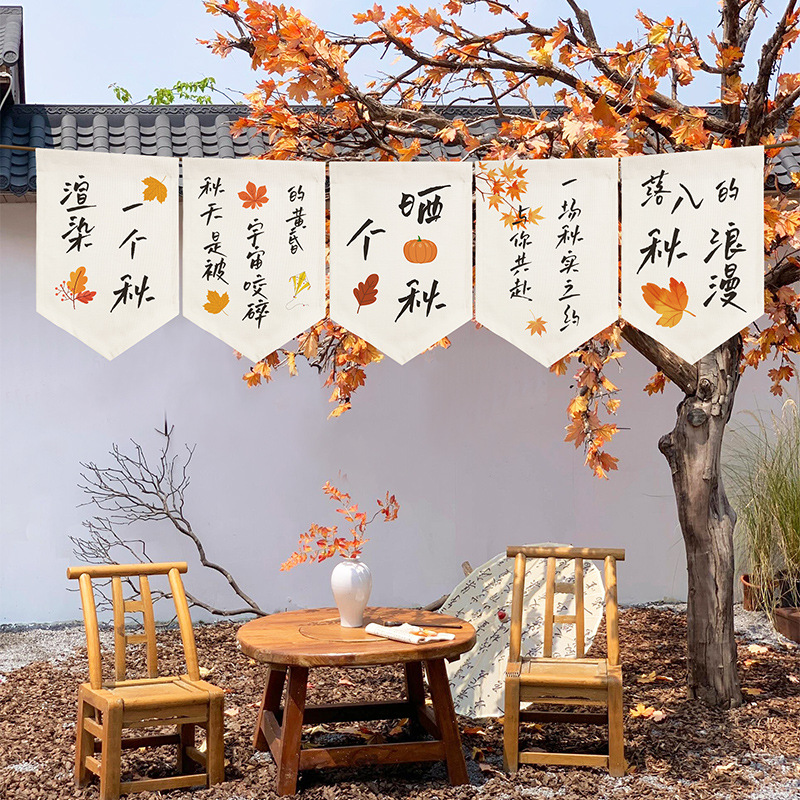 渲染
一个秋
秋天是被
宇宙咬碎
的黄昏
晒
个
秋
与你共赴
一场秋实之约
落入
秋
的
浪漫